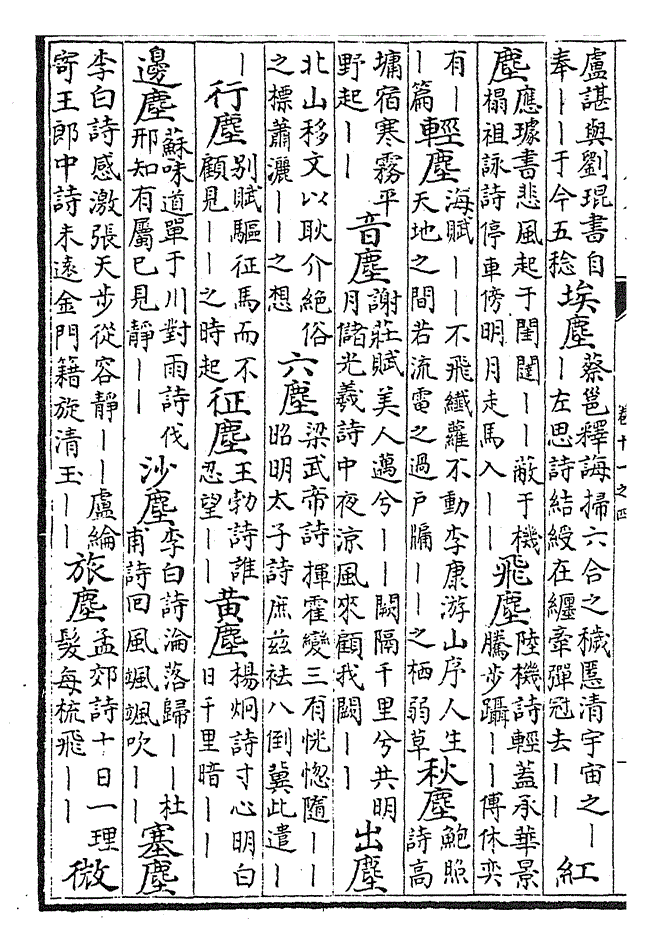 盧諶與劉琨書自
奉——于今五稔
埃塵
蔡邕釋誨掃六合之穢慝清宇宙之—
—左思詩結綬在纏牽彈冠去——
紅
塵
應璩書悲風起于閨闥——蔽于機
榻祖詠詩停車傍明月走馬入——
飛塵
陸機詩輕蓋承華景
騰步躡——傅休奕
有—
—篇
輕塵
海賦——不飛纖蘿不動李康游山序人生
天地之間若流電之過戶牖——之栖弱草
秋塵
鮑照
詩高
墉宿寒霧平
野起——
音塵
謝莊賦美人邁兮——闕隔千里兮共明
月儲光羲詩中夜涼風來顧我闕——
出塵
北山移文以耿介絕俗
之標蕭灑——之想
六塵
梁武帝詩揮霍變三有恍惚隨——
昭明太子詩庶茲袪八倒冀此遣—
—
行塵
别賦驅征馬而不
顧見——之時起
征塵
王勃詩誰
忍望——
黃塵
楊炯詩寸心明白
日千里暗——
邊塵
蘇味道單于川對雨詩伐
邢知有屬已見靜——
沙塵
李白詩淪落歸——杜
甫詩回風颯颯吹——
塞塵
李白詩感激張天步從容靜——盧綸
寄王郎中詩未遠金門籍旋清玉——
旅塵
孟郊詩十日一理
髮每梳飛——
微
卷十一之四